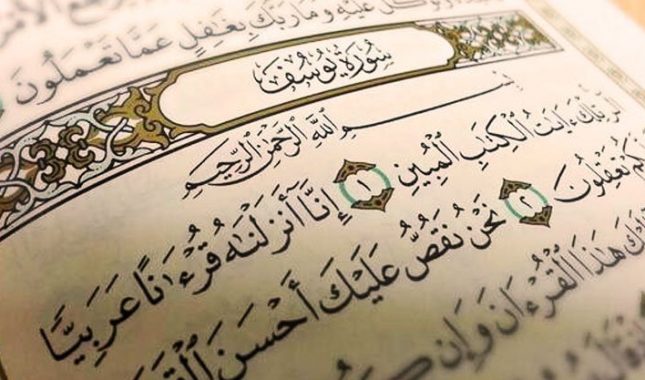 عَلَيْهِ وَمَا رَبُّكَ بِغَٰفِلٍ عَمَّا تَعْمَلُونَ
سُورَةُ يُوسُفَ
بِسْمِ اللَّهِ الرَّحْمَٰنِ الرَّحِيمِ
الٓر تِلْكَ ءَايَٰتُ الْكِتَٰبِ الْمُبِينِ ١ إِنَّآ أَنزَلْنَٰهُ قُرْءَٰنًا عَرَبِيًّا
تَعْقِلُونَ ٢ نَحْنُ نَقُصُّ عَلَيْكَ أَحْسَنَ
هَٰذَا الْقُرْءَانَ وَإِن